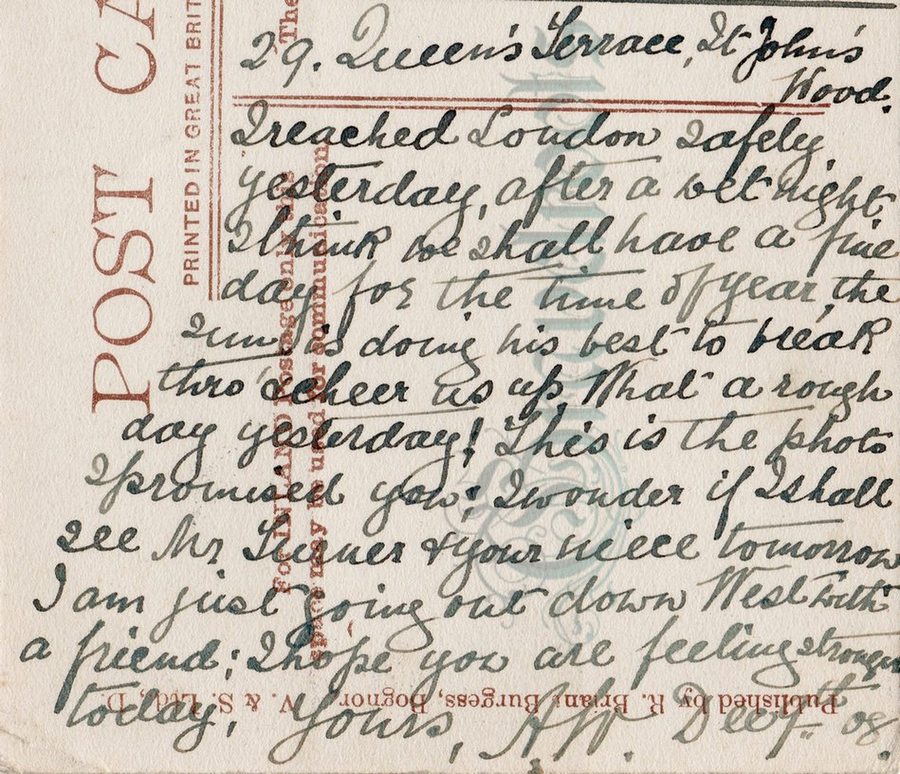 29. Queen's Terrace, St John's
Wood.
I reached London safely
yesterday, after a wet night.
I think we shall have a fine
day for the time of year, the
sun is doing his best to break
thro' & cheer us up. What a rough
day yesterday! This is the photo
I promised you; I wonder if I shall
see Mr Turner & your niece tomorrow
I am just going out down West with
a friend; I hope you are feeling stronger
today, Yours, Dec 08.
POST CA
PRINTED IN GREAT BRIT
The
For INLAND Postage only this
space may be used for communication
Published by R. Briant Burgess, Bognor V. & S. Ltd., D.